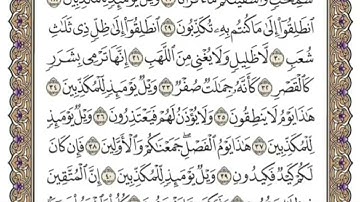 شَٰمِخَٰتٍ وَأَسْقَيْنَٰكُم مَّآءً فُرَاتًا ٢٧ وَيْلٌ يَوْمَئِذٍ لِّلْمُكَذِّبِينَ ٢٨
ٱنطَلِقُوٓا۟ إِلَىٰ مَا كُنتُم بِهِۦ تُكَذِّبُونَ ٢٩ ٱنطَلِقُوٓا۟ إِلَىٰ ظِلٍّ ذِى ثَلَٰثِ
شُعَبٍ ٣٠ لَّا ظَلِيلٍ وَلَا يُغْنِى مِنَ ٱللَّهَبِ ٣١ إِنَّهَا تَرْمِى بِشَرَرٍ
كَٱلْقَصْرِ ٣٢ كَأَنَّهُۥ جِمَٰلَتٌ صُفْرٌ ٣٣ وَيْلٌ يَوْمَئِذٍ لِّلْمُكَذِّبِينَ ٣٤
هَٰذَا يَوْمُ لَا يَنطِقُونَ ٣٥ وَلَا يُؤْذَنُ لَهُمْ فَيَعْتَذِرُونَ ٣٦ وَيْلٌ يَوْمَئِذٍ
لِّلْمُكَذِّبِينَ ٣٧ هَٰذَا يَوْمُ ٱلْفَصْلِ جَمَعْنَٰكُمْ وَٱلْأَوَّلِينَ ٣٨ فَإِن كَانَ
لَكُمْ كَيْدٌ فَكِيدُونِ ٣٩ وَيْلٌ يَوْمَئِذٍ لِّلْمُكَذِّبِينَ ٤٠ إِنَّ ٱلْمُتَّقِينَ